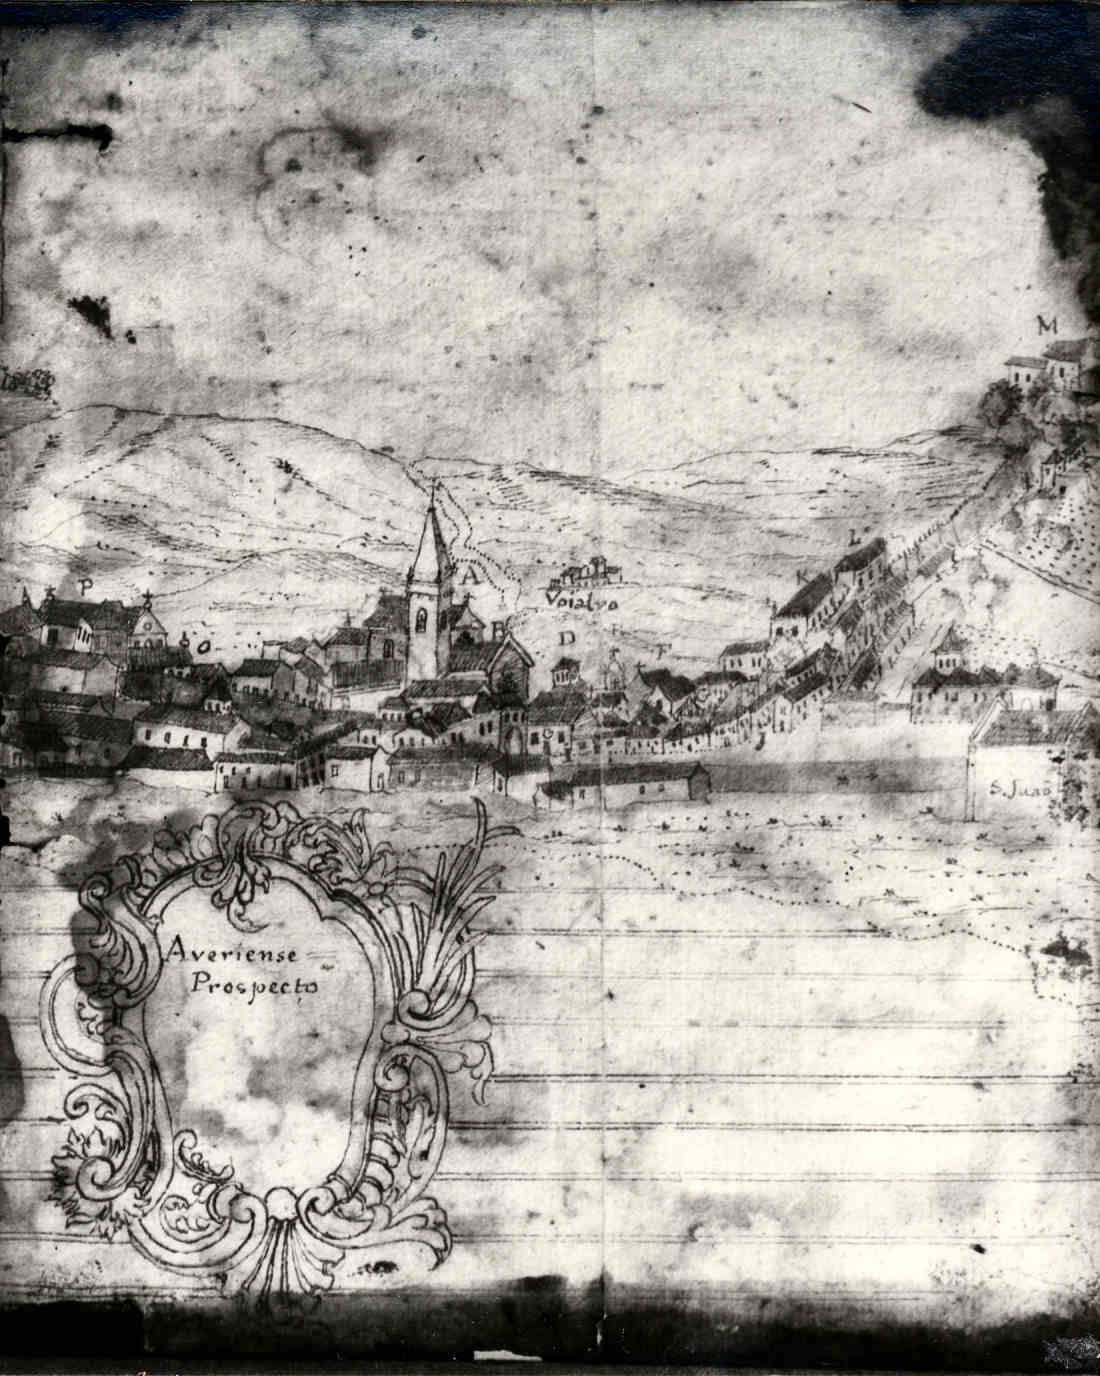 M
L
K
P
A
Voialvo
B
O
D
F
S. Juaõ
Averiense
Prospecto